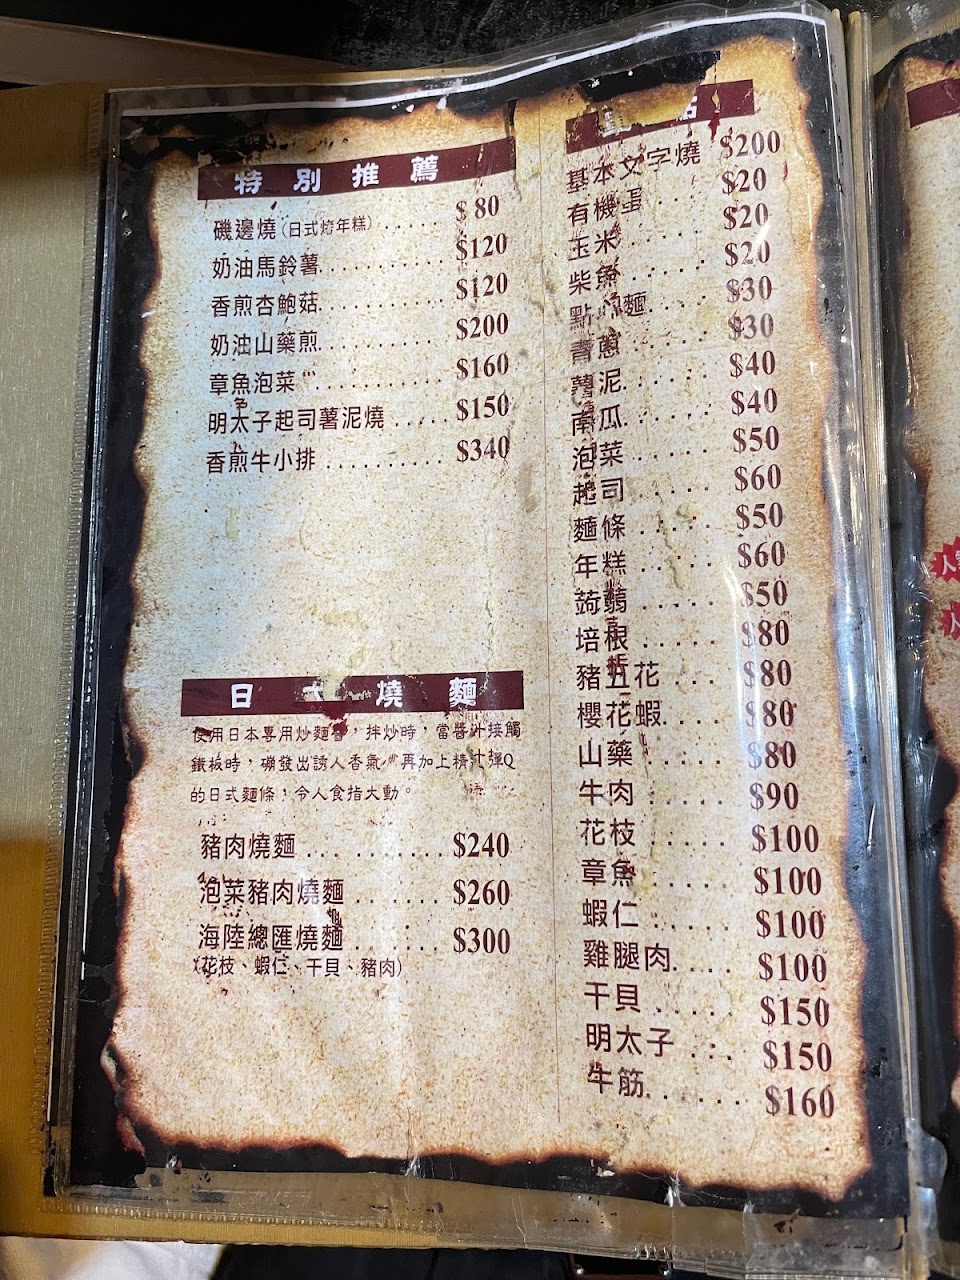 特別推薦
磯邊燒(日式烤年糕)......$80
奶油馬鈴薯..........$120
香煎杏鮑菇..........$120
奶油山藥煎..........$200
章魚泡菜..........$160
明太子起司薯泥燒.....$150
香煎牛小排..........$340
日 燒麵
使用日本專用炒麵醬,拌炒時,當醬汁接觸
鐵板時,磯發出誘人香氣,再加上精汁彈Q
的日式麵條,令人食指大動。
豬肉燒麵..........$240
泡菜豬肉燒麵.......$260
海陸總匯燒麵.......$300
(花枝、蝦仁、干貝、豬肉)
基本文字燒 $200
有機蛋....$20
玉米......$20
柴魚......$20
點 麵.....$30
青蔥......$30
薯泥......$40
南瓜......$40
泡菜......$50
起司......$60
麵條.....$50
年糕.....$60
蒟蒻.....$50
培根.....$80
豬五花...$80
櫻花蝦....$80
山藥.....$80
牛肉.....$90
花枝.....$100
章魚.....$100
蝦仁.....$100
雞腿肉....$100
干貝.....$150
明太子...$150
牛筋......$160